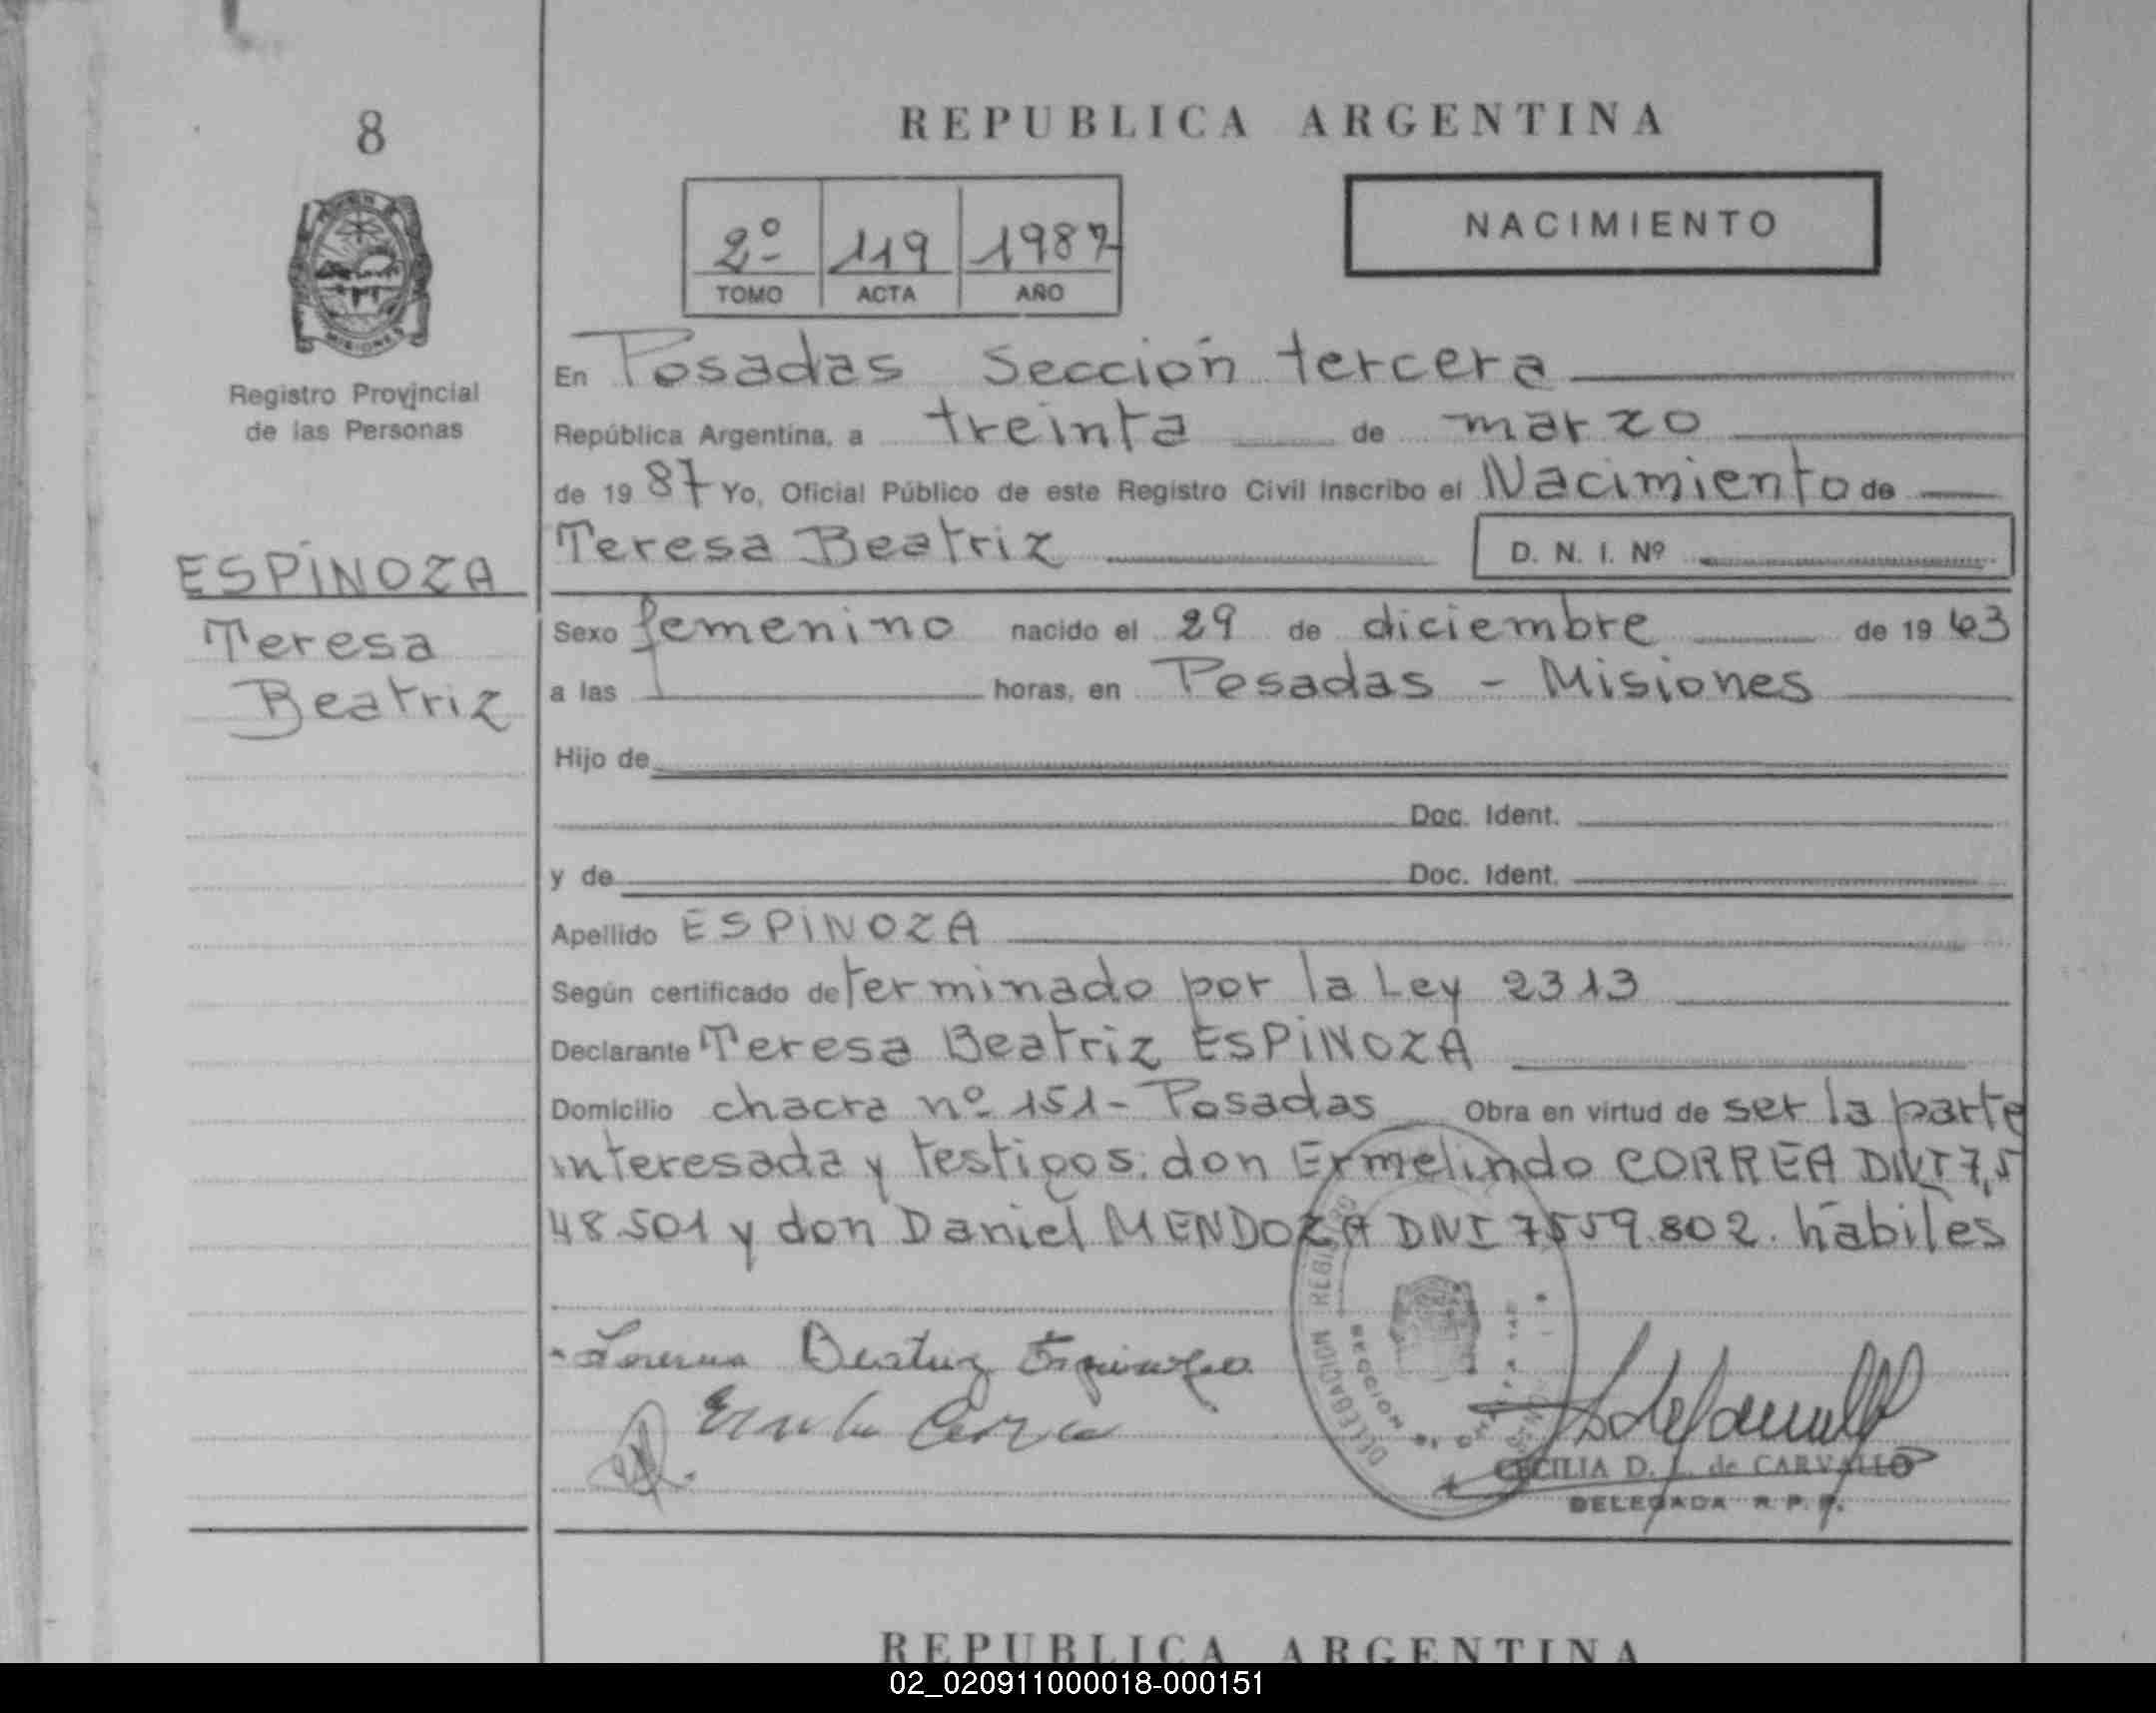 8
REPUBLICA ARGENTINA
NACIMIENTO
2º 119 1987
TOMO ACTA AÑO
MISIONES
Registro Provincial
de las Personas
ESPINOZA
Teresa
Beatriz
En Posadas Sección tercera
República Argentina, a treinta de marzo
de 1987 Yo, Oficial Público de este Registro Civil inscribo el Nacimiento de
Teresa Beatriz D. N. I. Nº
Sexo femenino nacido el 29 de diciembre de 19
a las horas, en Posadas - Misiones
Hijo de
Doc. Ident.
y de Doc. Ident.
Apellido ESPINOZA
Según certificado determinado por la Ley 2313
Declarante Teresa Beatriz ESPINOZA
Domicilio chacra nº 151 - Posadas Obra en virtud de ser la parte
interesada y testigos: don Ermelindo CORREA DNI 7,5
48.501 y don Daniel MENDOZA DNI 7559.802. hábiles
DELEGACION
SECCION
CECILIA D. L. de CARVALLO
DELEGADA R. P. P.
REPUBLICA ARGENTINA
02_020911000018-000151